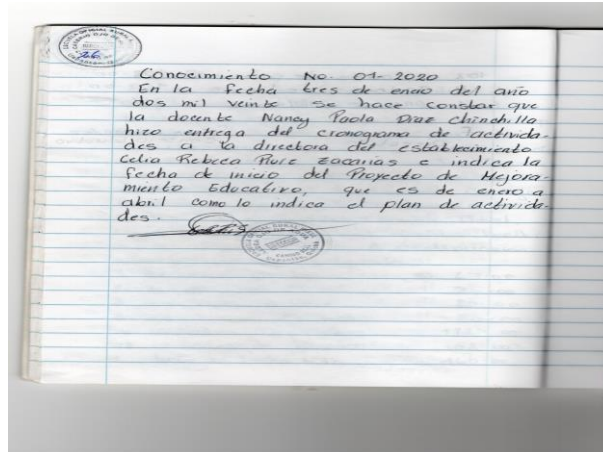 26
Conocimiento No. 01-2020
En la Fecha tres de enero del año
dos mil veinte se hace constar que
la docente Nancy Paola Diaz Chinchilla
hizo entrega del cronograma de activida-
des a la directora del establecimiento
Celia Rebeca Zacarias e indica la
fecha de inicio del Proyecto de Mejora-
miento Educativo, que es de enero a
abril como lo indica el plan de activida-
des.